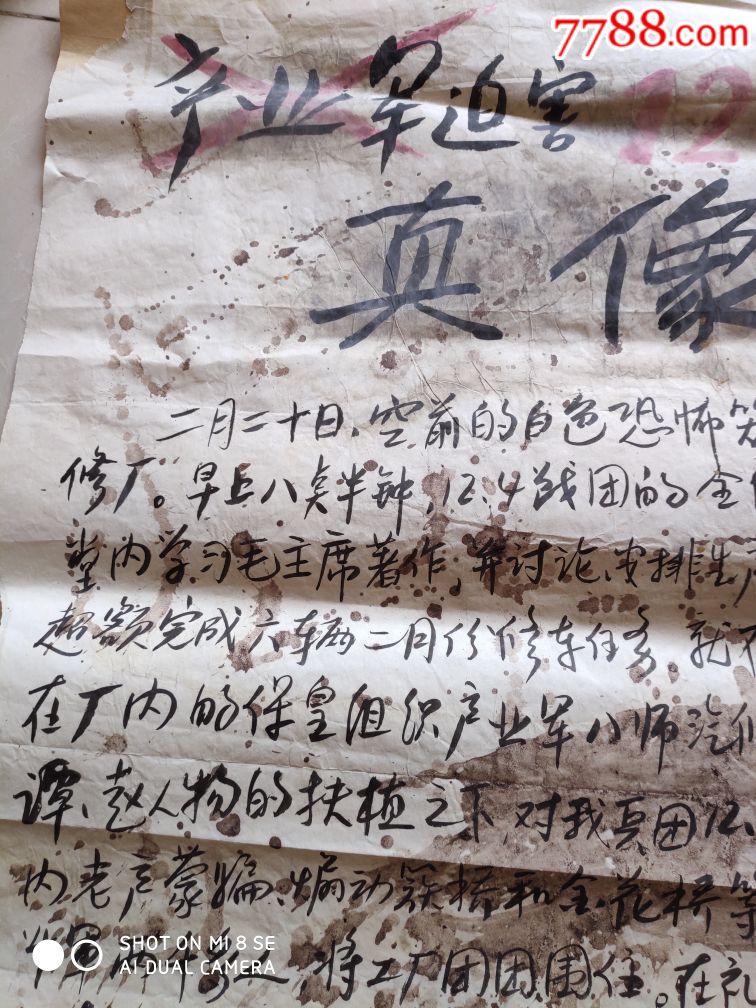 7788.com
产业军迫害12
真像
二月二十日，空前的白色恐怖笼
修厂。早上八点半钟，12.4战团的全
堂内学习毛主席著作，并讨论、安排生产
超额完成六车辆二月份修车任务，就
在厂内的保皇组织产业军八师汽修
谭、赵人物的扶植之下，对我兵团12
内老产蒙骗、煽动簇桥和金花桥等
将工厂团团围住。在
SHOT ON MI 8 SE
AI DUAL CAMERA